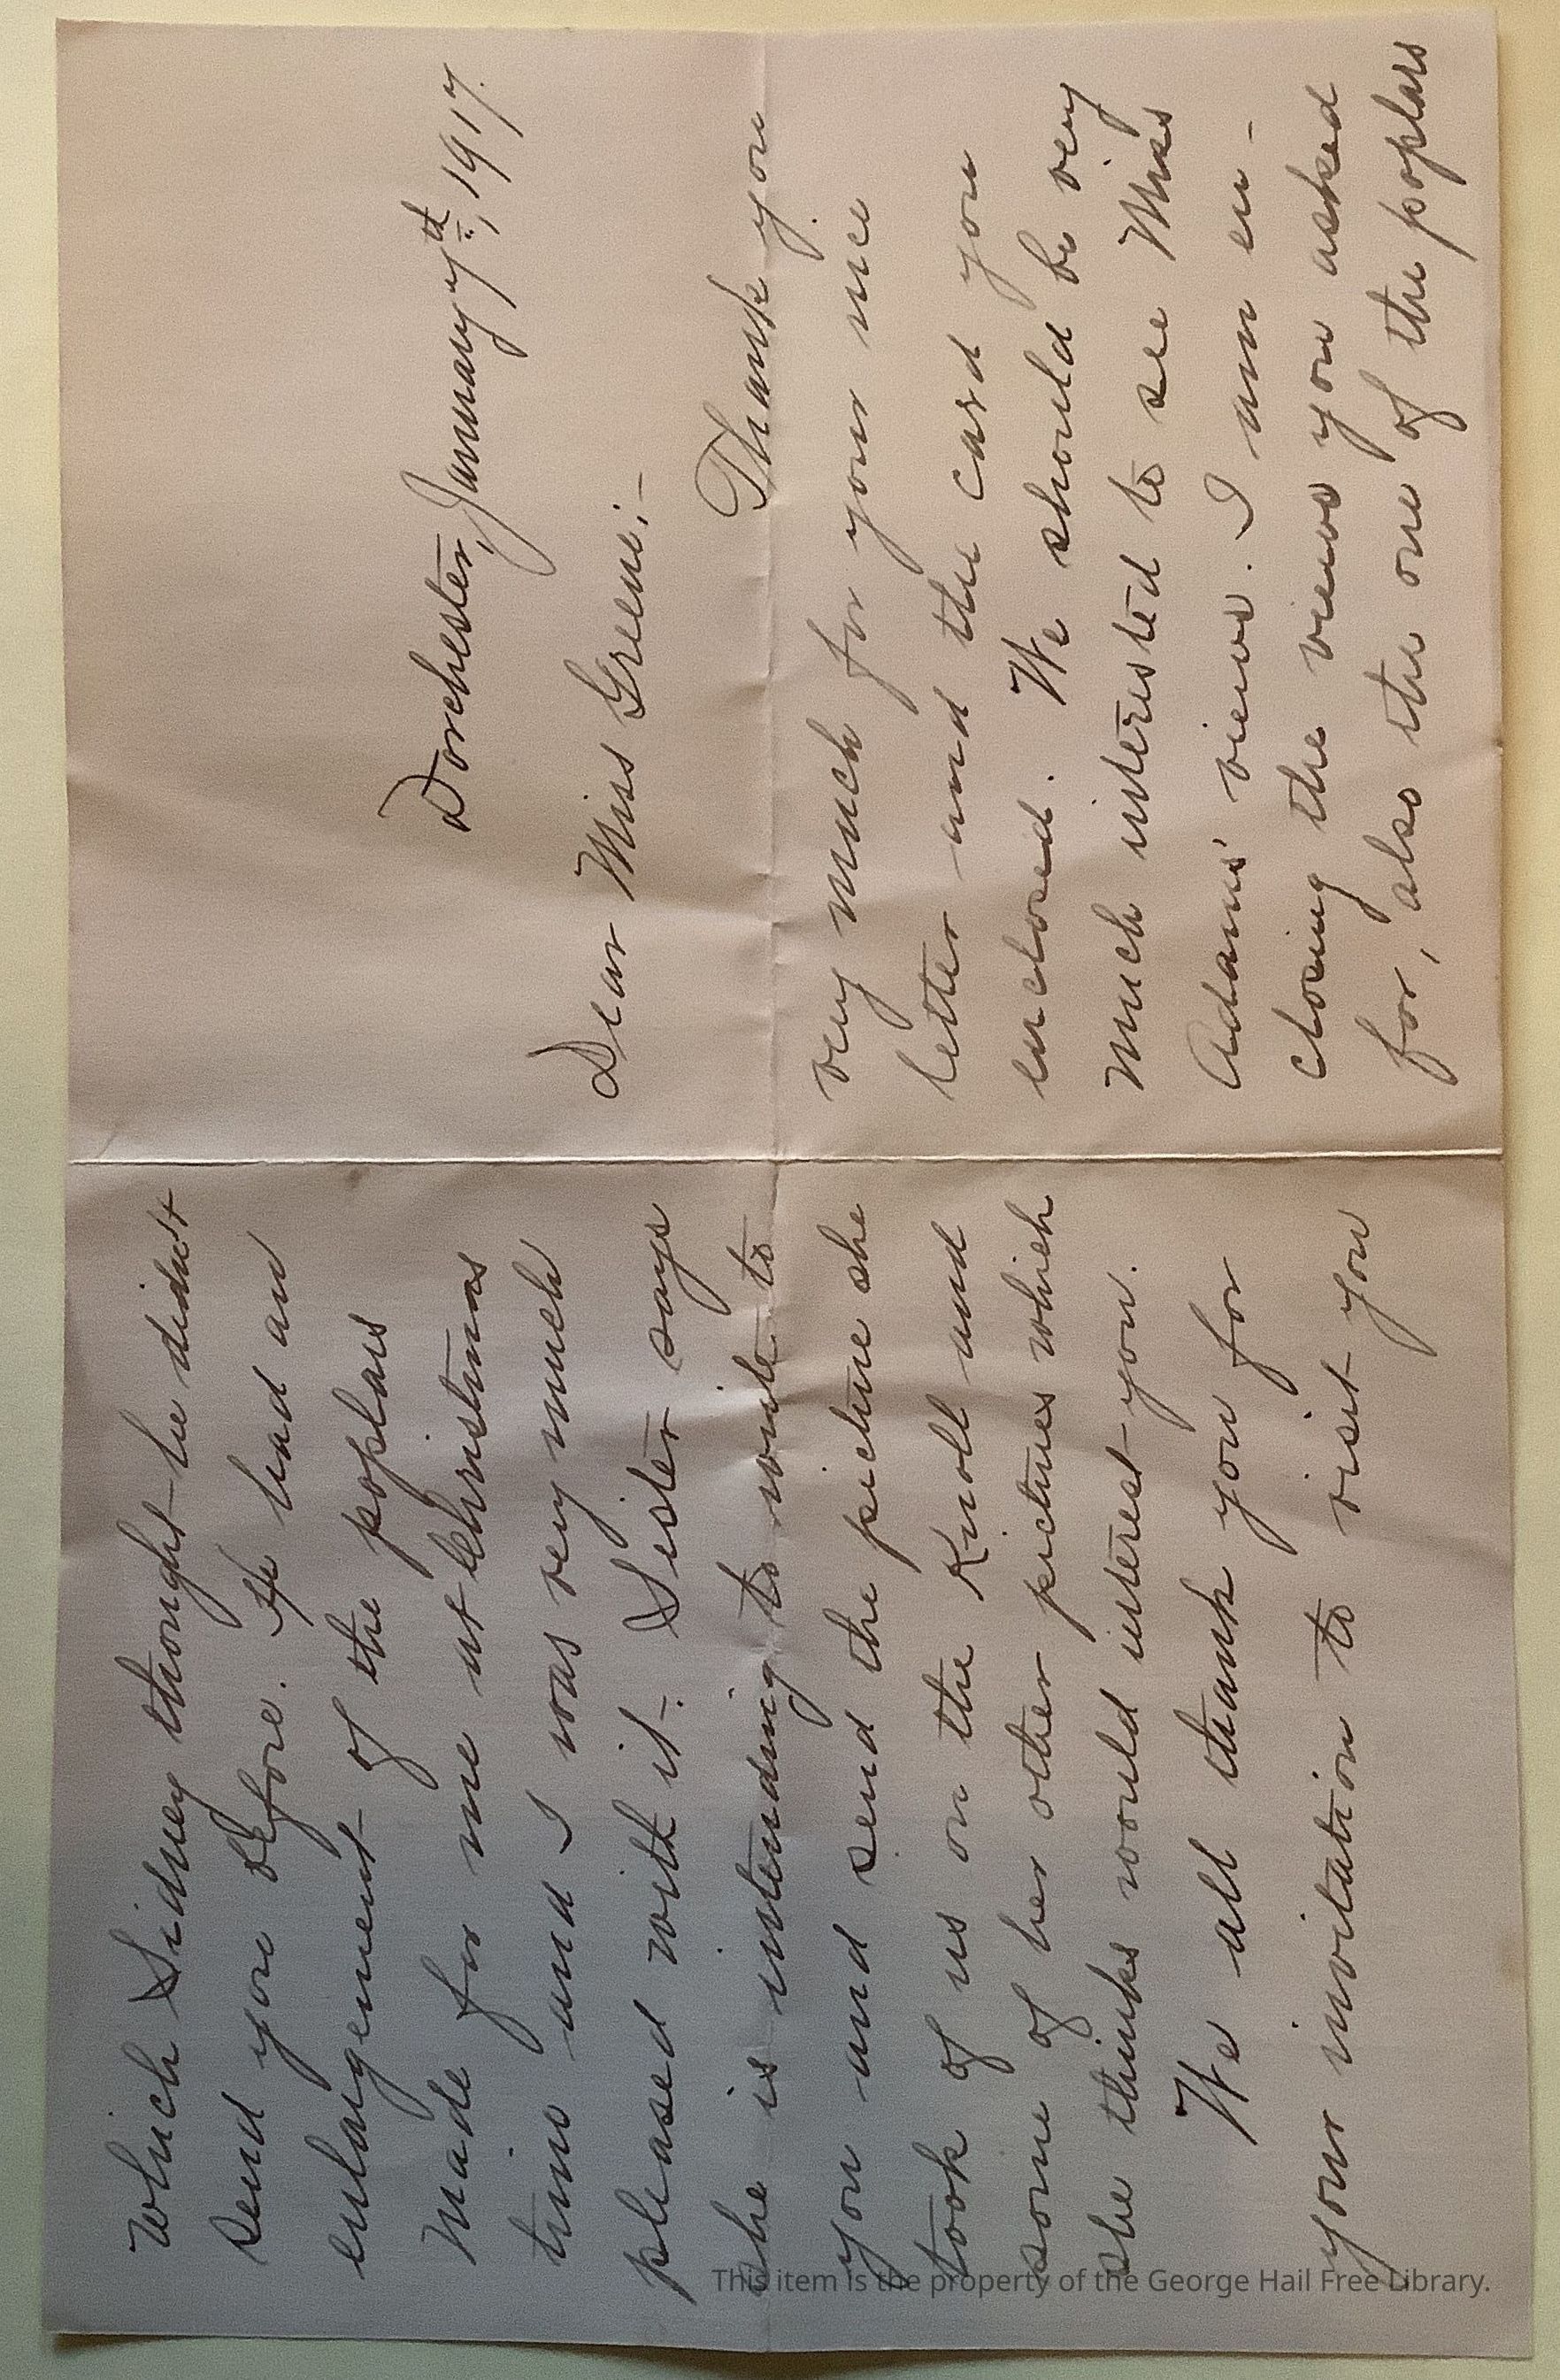 Dorchester, January 7th, 1917.
Dear Miss Greene:-
Thank you
very much for your nice
letter and the card you
enclosed. We should be very
much interested to see Miss
Adams' views. I am en-
closing the views you asked
for, also the one of the poplars
which Sidney thought he didn't
send you before. He had an
enlargement of the poplars
made for me at Christmas
time and I was very much
pleased with it. Sister says
she is intending to write to
you and send the picture she
took of us on the Knoll and
some of her other pictures which
she thinks would interest you.
We all thank you for
your invitation to visit you
This item is the property of the George Hail Free Library.